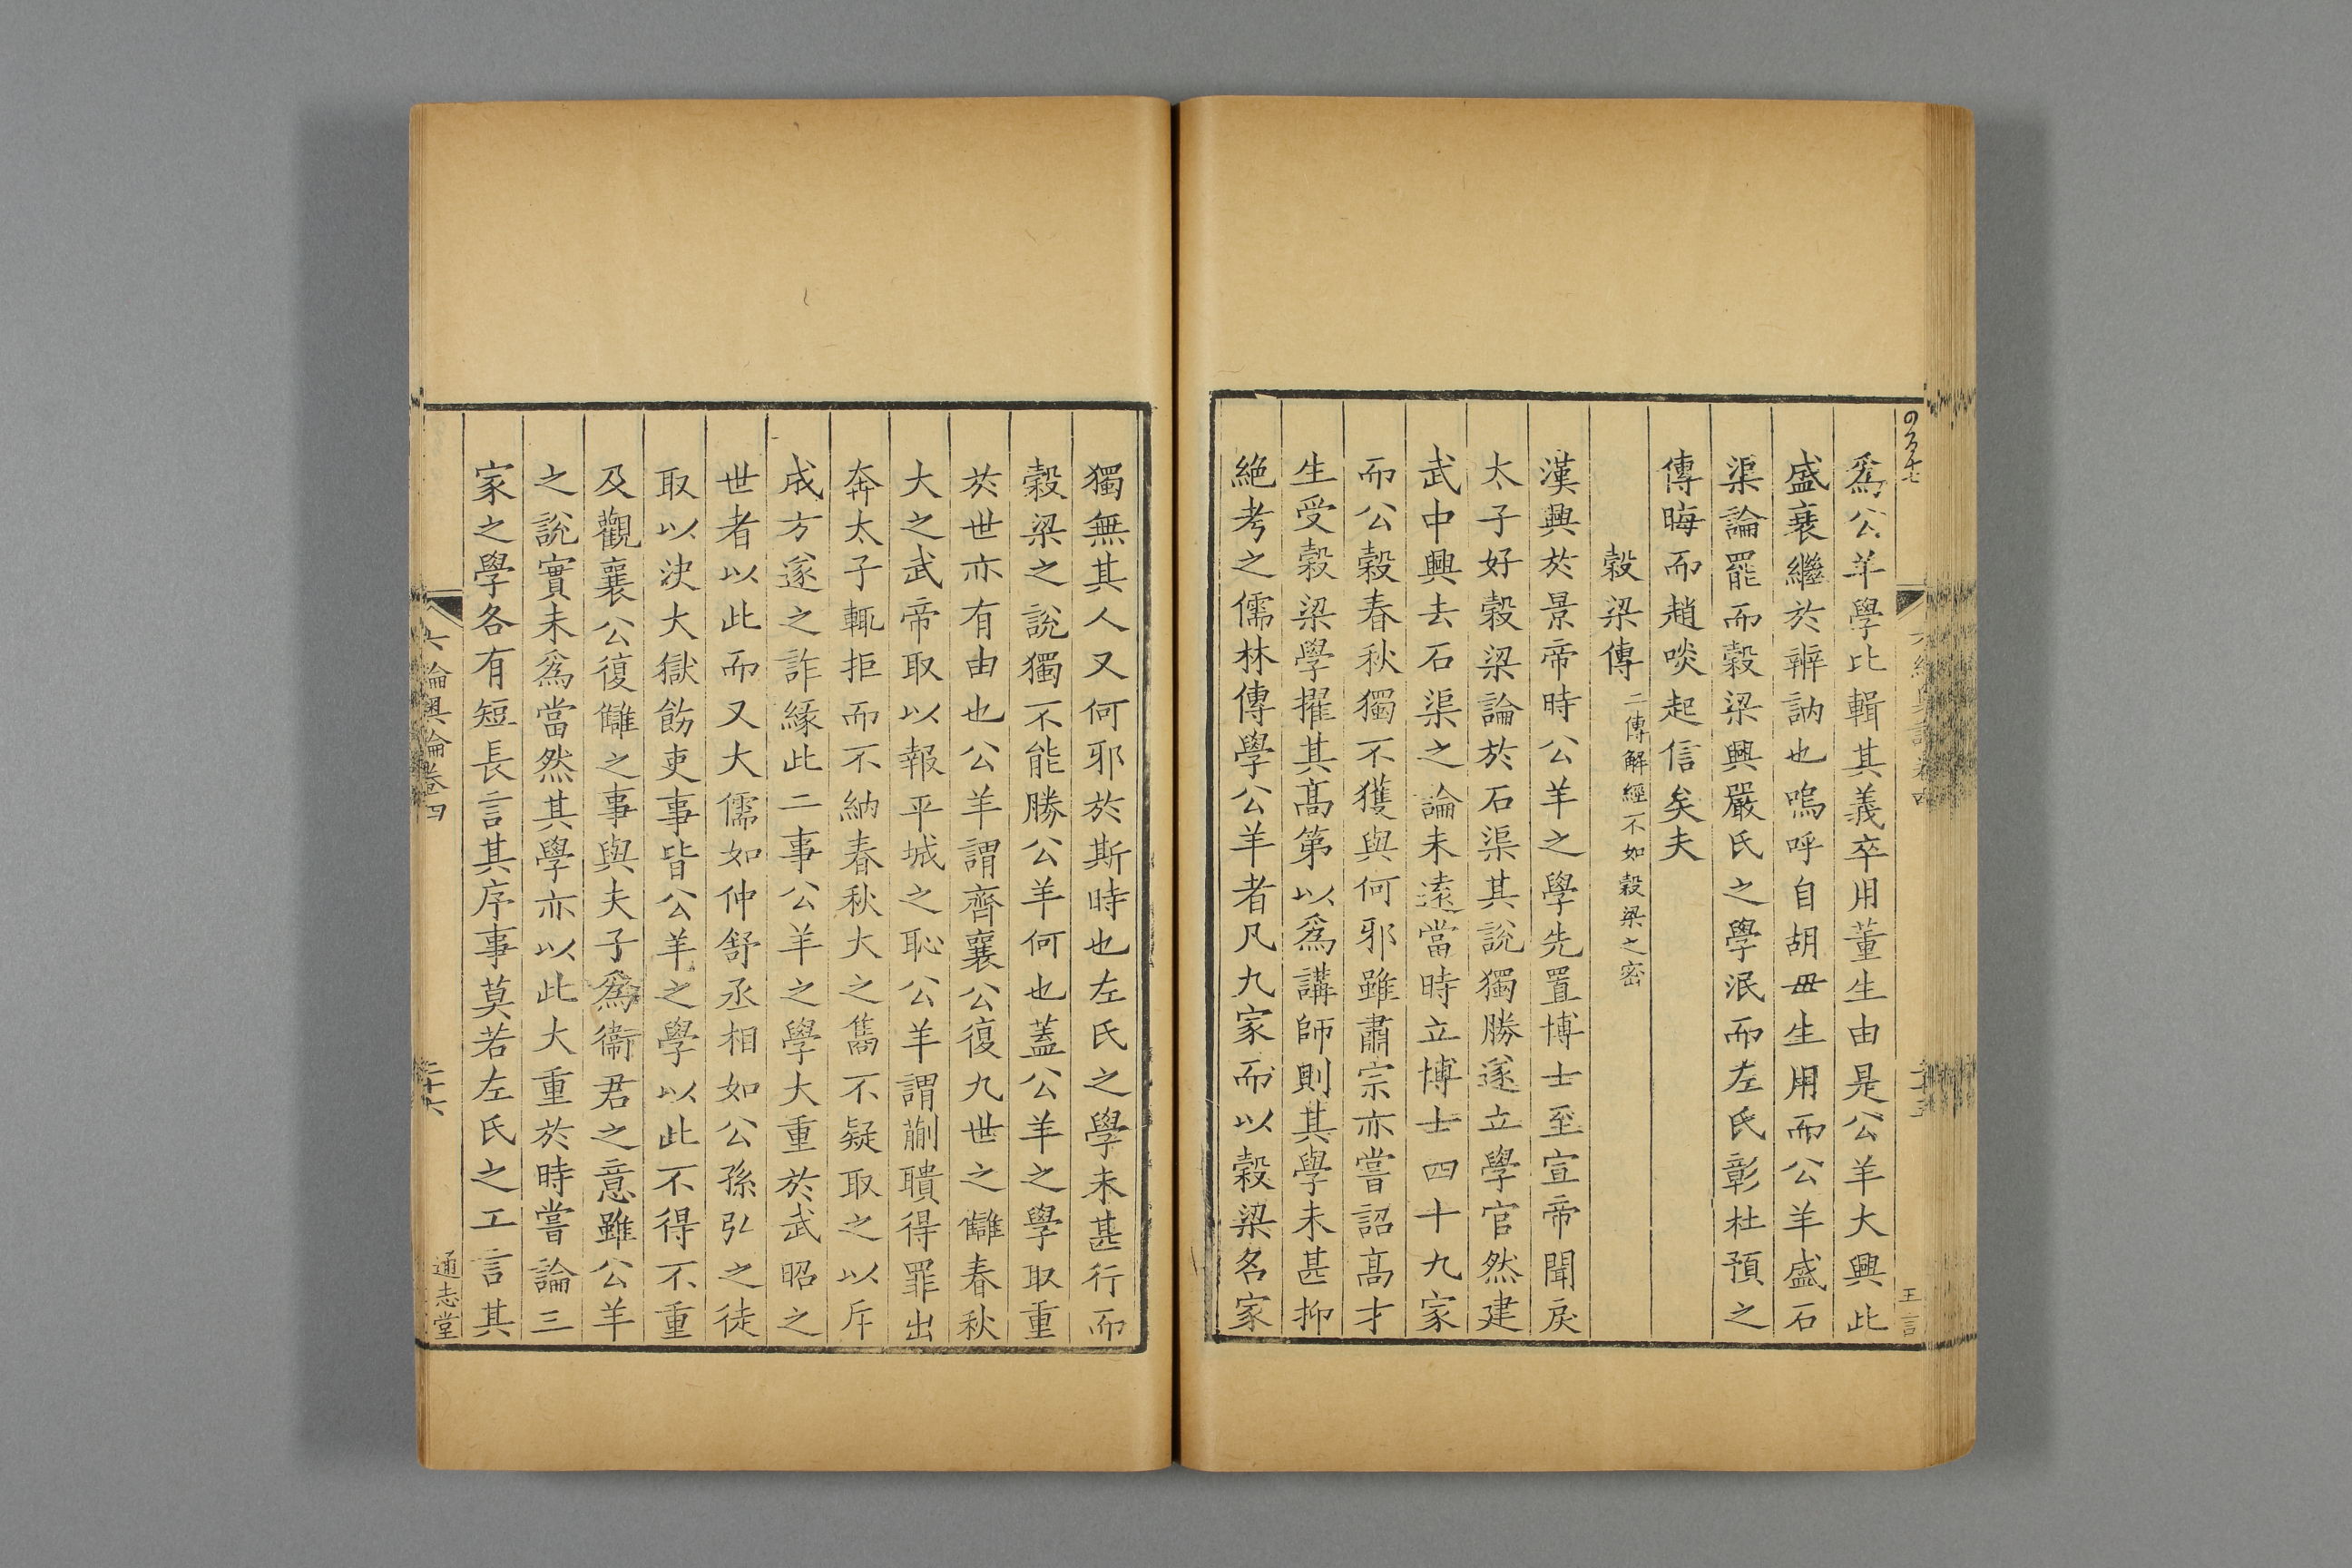 爲公羊學比輯其義卒用董生由是公羊大興此
盛衰繼於辨訥也嗚呼自胡毋生用而公羊盛石
渠論罷而穀梁興嚴氏之學泯而左氏彰杜預之
傳晦而趙啖起信矣夫
穀梁傳 二傳解經不如穀梁之密
漢興於景帝時公羊之學先置博士至宣帝聞戾
太子好穀梁論於石渠其說獨勝遂立學官然建
武中興去石渠之論未遠當時立博士四十九家
而公穀春秋獨不獲與何邪雖肅宗亦嘗詔高才
生受穀梁學擢其高第以爲講師則其學未甚抑
絶考之儒林傳學公羊者凡九家而以穀梁名家
獨無其人又何邪於斯時也左氏之學未甚行而
穀梁之說獨不能勝公羊何也蓋公羊之學取重
於世亦有由也公羊謂齊襄公復九世之讎春秋
大之武帝取以報平城之恥公羊謂蒯聵得罪出
奔太子輒拒而不納春秋大之雋不疑取之以斥
成方遂之詐緣此二事公羊之學大重於武昭之
世者以此而又大儒如仲舒丞相如公孫弘之徒
取以決大獄飭吏事皆公羊之學以此不得不重
及觀襄公復讎之事與夫子爲衞君之意雖公羊
之說實未爲當然其學亦以此大重於時嘗論三
家之學各有短長言其序事莫若左氏之工言其
六論奧論卷四
二十六
通志堂
王言